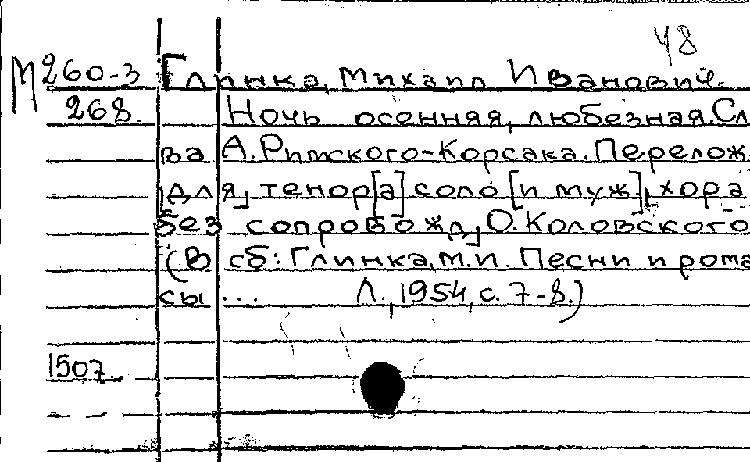 48
М 260-3 Глинка, Михаил Иванович.
268. Ночь осенняя, любезная. Сл
ва А. Римского-Корсака. Перелож.
для тенор[а] соло [и муж], хора
без сопровожд, О. Коловского
(В сб: Глинка, М.И. Песни и рома
сы ... Л., 1954, с. 7-8.)
1507